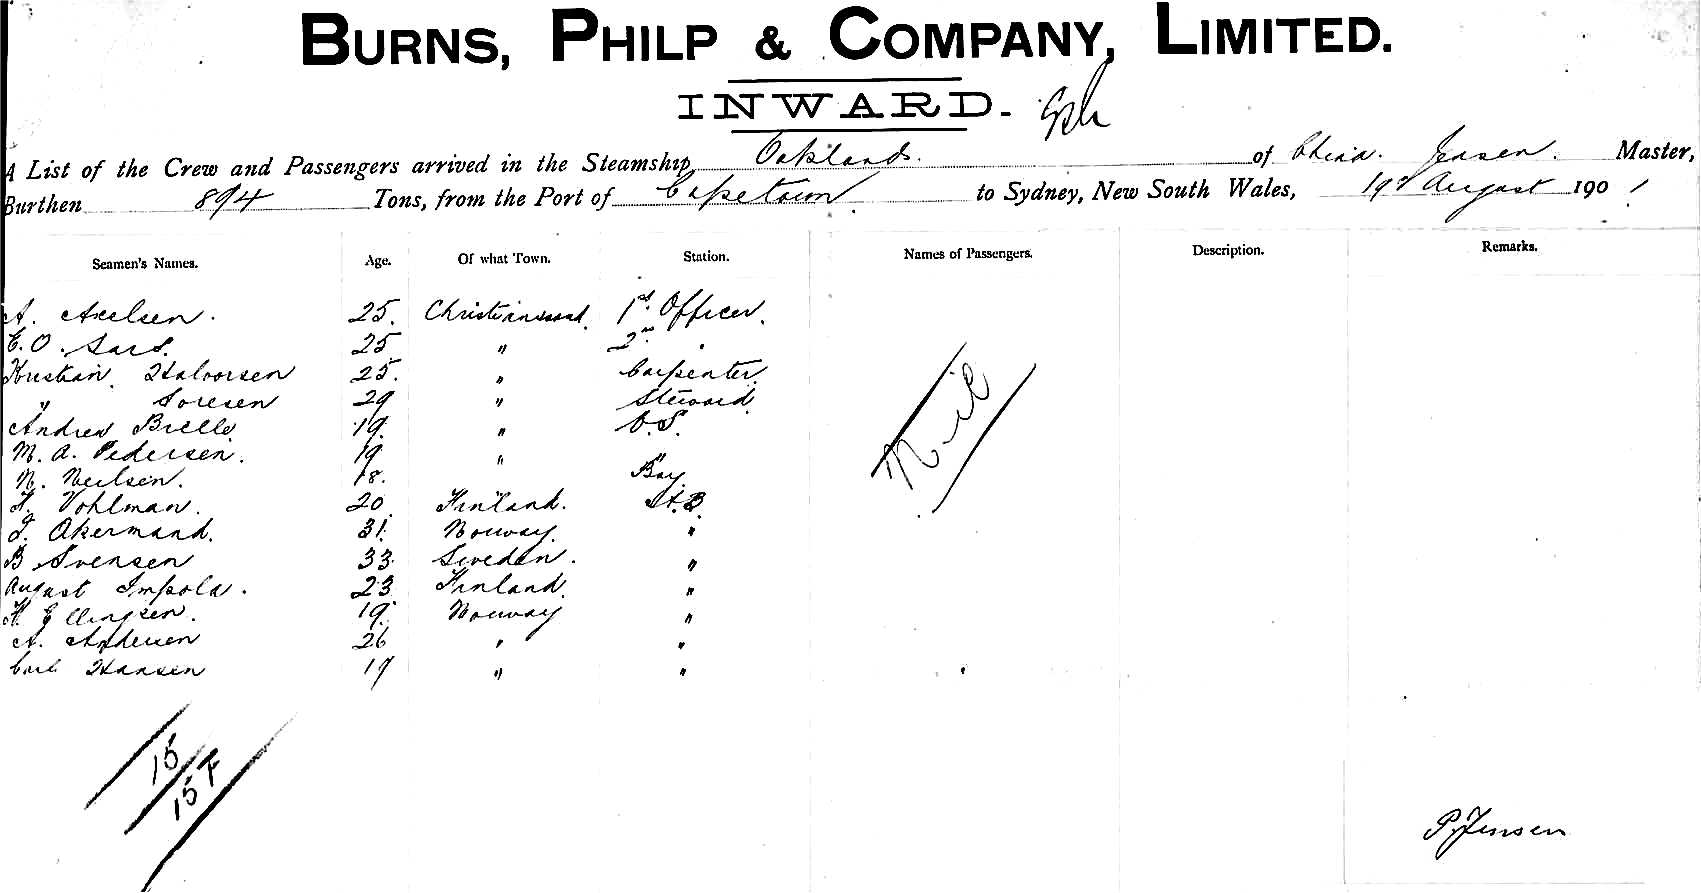 BURNS, PHILP & COMPANY, LIMITED.
INWARD.
A List of the Crew and Passengers arrived in the Steamship Oaklands. of Chria. Jensen. Master,
Burthen 894 Tons, from the Port of Capetown. to Sydney, New South Wales, 19th August 1901
Seamen's Names. Age. Of what Town. Station. Names of Passengers. Description. Remarks.
A. Axelsen. 25. Christiansand. 1st. Officer.
E. O. Sars. 25 " 2nd. "
Kristian Halvorsen 25. " Carpenter.
" Soresen 29 " Steward.
Andrea Brelle 19. " O.S.
M. A. Pedersen. 19 " "
N. Neilsen. 18. Boy
F. Vohlman. 20 Finland. A.B.
F. Akermand. 31. Norway. "
B Svensen 33 Sweden. "
August Impola. 23 Finland. "
H. Ellingsen. 19. Norway "
A. Andersen 26 " "
Carl Hansen 19 " "
Nil
15
15 F
P. Jensen